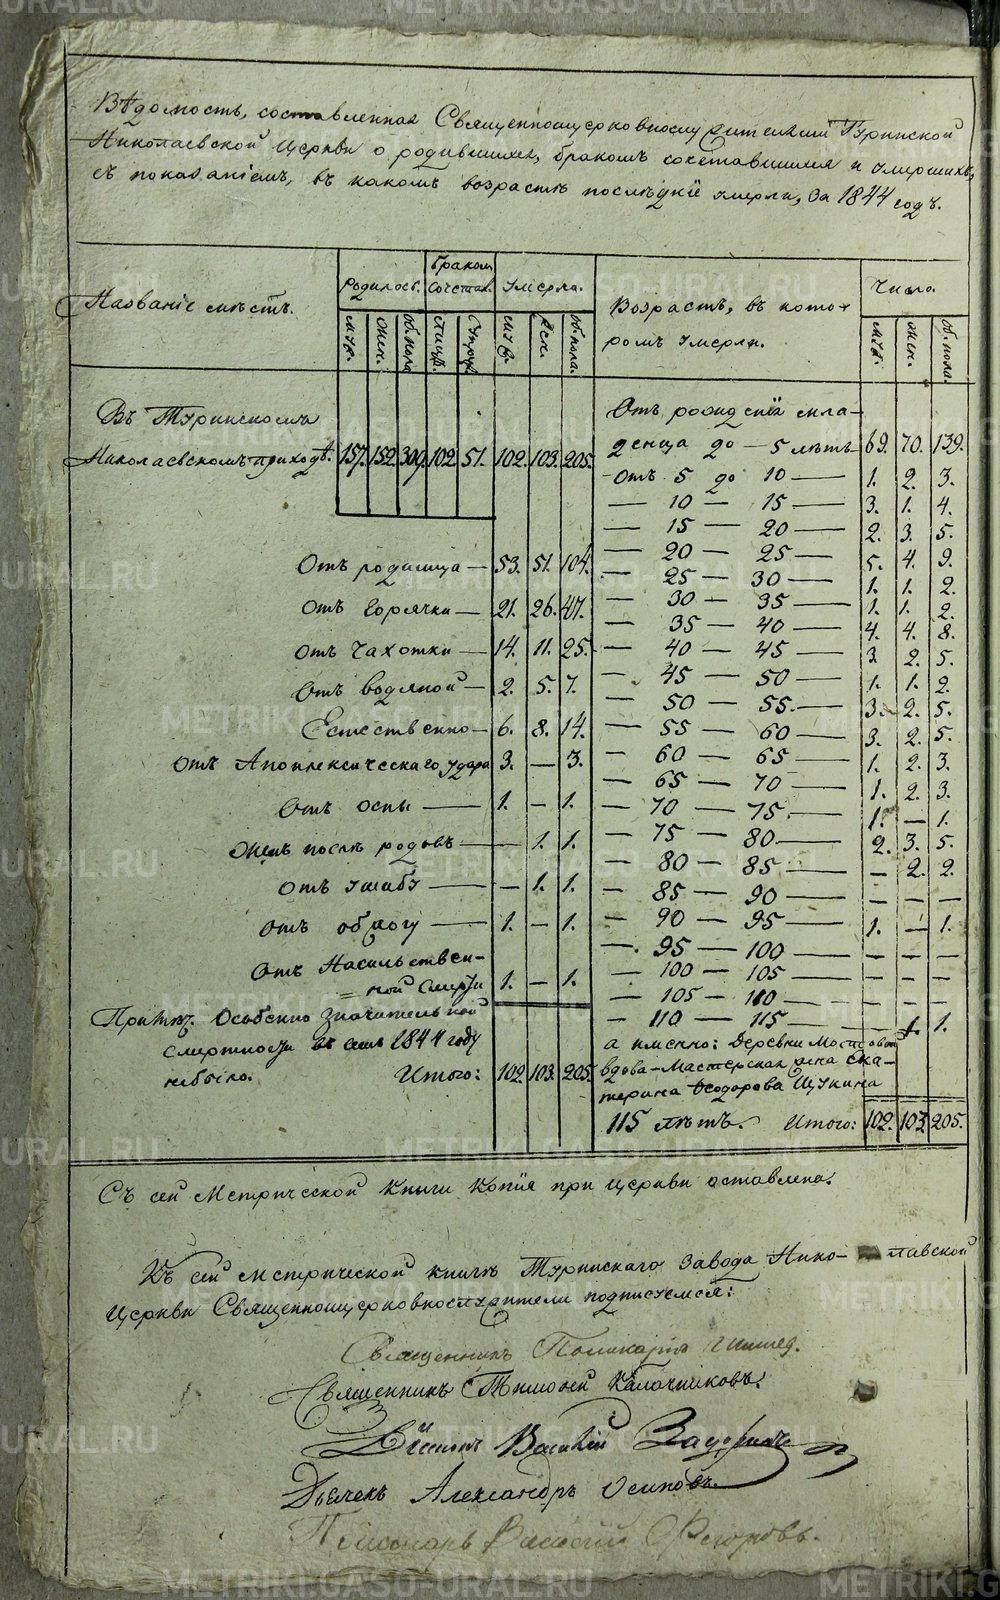 METRIKI.GASU-URAL.RU
Вѣдомость, составленная Священноцерковнослужителями Туринской
Николаевской Церкви о родившихся, бракомъ сочетавшихся и умершихъ,
съ показаніемъ, въ какомъ возрастѣ послѣдніе умерли, за 1844 годъ.
Названіе мѣстъ. Родилось. Бракомъ сочетал. Умерло. Возрастъ, въ кото-
ромъ умерли. Число
муж. жен. об. пола лицъ. супруж. муж. жен. об. пола. муж. жен. об. пола.
Въ Туринскомъ Отъ рожденія мла-
Николаевскомъ приходѣ. 157. 152. 309. 102. 51. 102. 103. 205. денца до — 5 лѣтъ 69. 70. 139.
Отъ 5 до 10 — 1. 2. 3.
— 10 — 15 — 3. 1. 4.
— 15 — 20 — 2. 3. 5.
— 20 — 25 — 5. 4. 9.
— 25 — 30 — 1. 1. 2.
— 30 — 35 — 1. 1. 2.
— 35 — 40 — 4. 4. 8.
— 40 — 45 — 3. 2. 5.
— 45 — 50 — 1. 1. 2.
— 50 — 55. — 3. 2. 5.
— 55 — 60 — 3. 2. 5.
— 60 — 65 — 1. 2. 3.
— 65 — 70 — 1. 2. 3.
— 70 — 75. — 1. — 1.
— 75 — 80 — 2. 3. 5.
— 80 — 85 — — 2. 2.
— 85 — 90 — — — —
— 90 — 95 — 1. — 1.
— 95 — 100 — — — —
— 100 — 105 — — — —
— 105 — 110 — — — —
— 110 — 115 — — 1. 1.
а именно: Деревни
вдова Мастерская жена Ека-
терина Ѳеодорова Щукина
115 лѣтъ. Итого: 102. 103. 205.
Отъ родимца — 53. 51. 104.
Отъ горячки — 21. 26. 47.
Отъ чахотки — 14. 11. 25.
Отъ водяной — 2. 5. 7.
Естественно — 6. 8. 14.
Отъ Апоплексическаго удара 3. — 3.
Отъ оспы — 1. — 1.
Жен. послѣ родовъ — — 1. 1.
Отъ ушибу — — 1. 1.
Отъ обжогу — 1. — 1.
Отъ Насильствен-
ной смерти 1. — 1.
Примѣч. Особенно значительной
смертности въ семъ 1844 году
небыло. Итого: 102. 103. 205.
Съ сей Метрической книги копія при церкви оставлена.
Къ сей метрической книгѣ Туринскаго завода Нико- лаевской
Церкви Священноцерковнослужители подписуемся:
Священникъ Поликарпъ
Священникъ Тимоѳей Калачниковъ.
Діаконъ Василій
Дьячекъ Александръ Осиповъ.
Пономарь Василій Ѳедоровъ.
METRIKI.GASU-URAL.RU